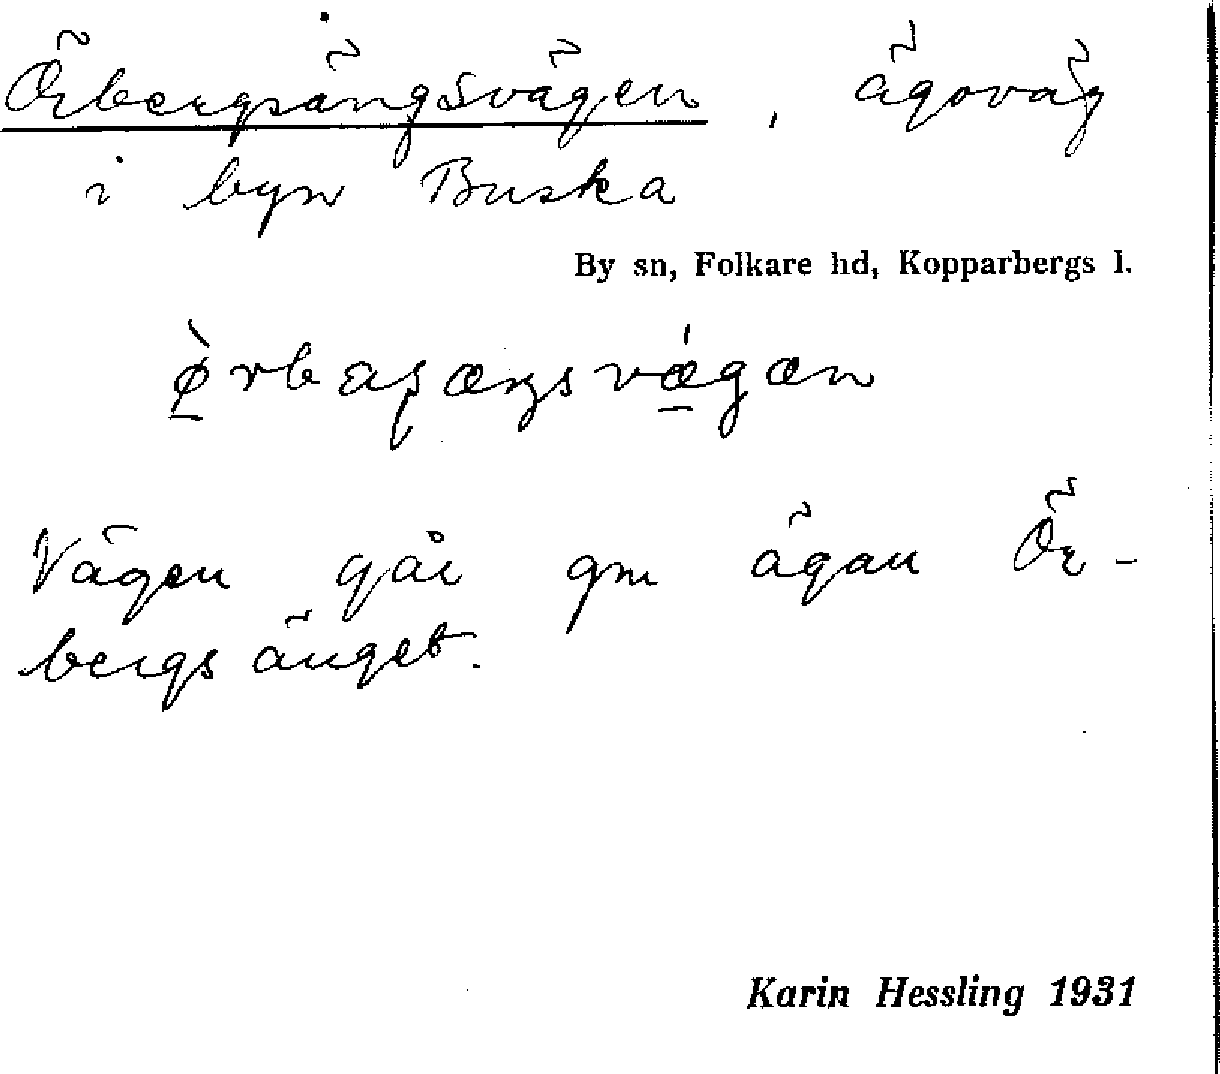 Örbergsängsvägen, ägoväg
i byn Buska
By sn, Folkare hd, Kopparbergs l.
Vägen går gm ägan Ör-
bergsänget.
Karin Hessling 1931